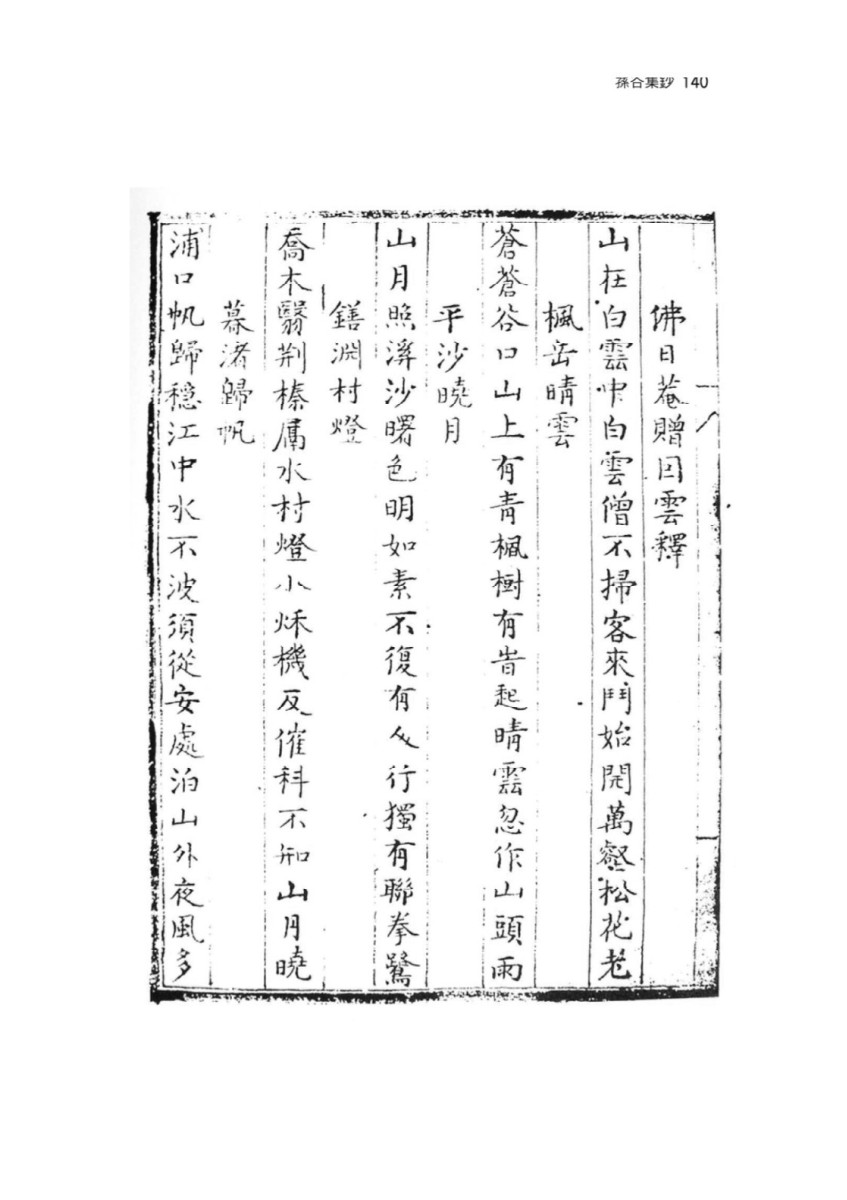 蓀谷集鈔 140
佛日菴贈因雲釋
山在白雲中白雲僧不掃客來門始開萬壑松花老
楓岳晴雲
蒼蒼谷口山上有青楓樹有旹起晴雲忽作山頭雨
平沙曉月
山月照溪沙曙色明如素不復有人行獨有聯拳鷺
鐥淵村燈
喬木翳荆榛屬水村燈小炑機反催科不知山月曉
暮渚歸帆
浦口帆歸穩江中水不波須從安處泊山外夜風多